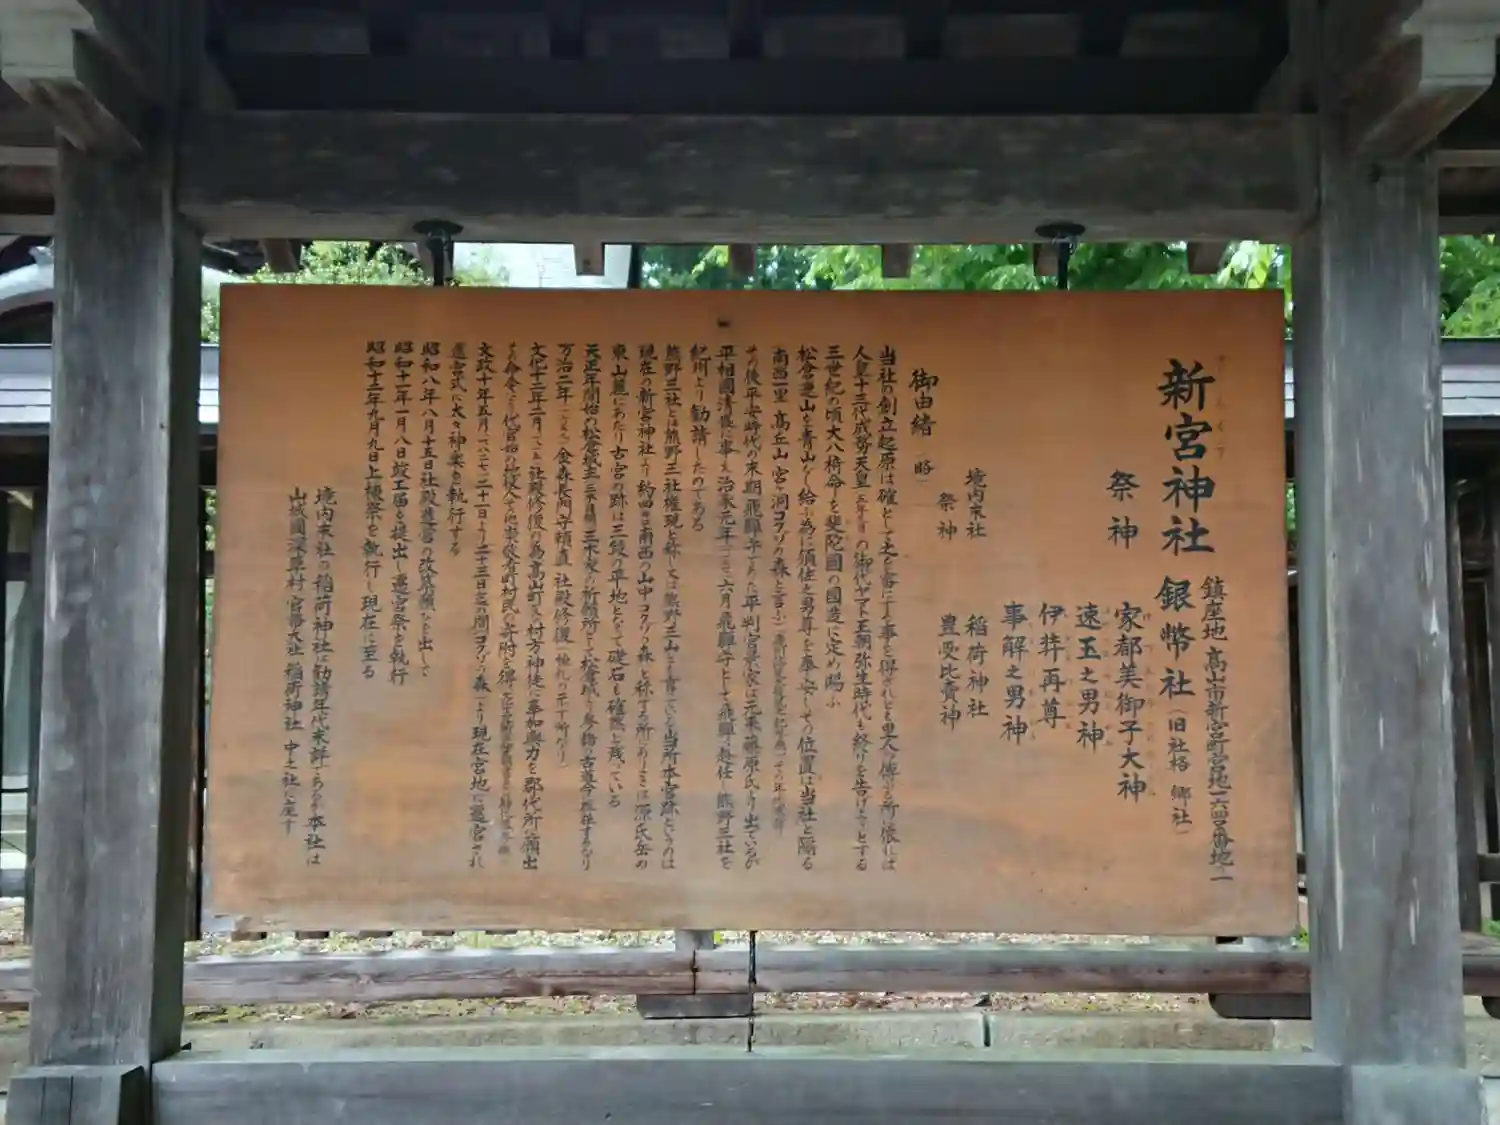 新宮神社 銀幣社（旧社格 郷社）
鎮座地 高山市新宮町宮地一六四四番地一
祭神
家都美御子大神
速玉之男神
伊弉再尊
事解之男神
境内末社
稲荷神社
祭神
豊受比賣神
御由緒（略）
当社の創立起原は確として之を審にする事を得ざれども里人の傳ふる所に依れば
人皇十三代成務天皇の御代ヤマト王朝弥生時代も終りを告げようとする
三世紀の頃大八椅命を斐陀國の國造に定め賜ふ
松倉連山を青山なし給ふ為に須佐之男尊を奉安しその位置は当社と隔る
南西一里 高丘山 宮ヶ洞コクゾウの森と言ふ
その後平安時代の末期飛騨守であった平判官景家は元来藤原氏より出ているが
平相國清盛に事え治承元年 六月飛騨守として飛騨に赴任し熊野三社を
紀州より勧請したのである
熊野三社とは熊野三社権現と称して又は熊野三山とも言っている当所本宮跡というのは
現在の新宮神社より約四 南西の山中コクゾウ森と称する所にありしさは源氏岳の
東山麓にあたり古宮の跡は三段の平地となって礎石も確然と残っている
天正年間始の松倉城主 三木家の祈願所として松倉城より参詣の古道今尚存すあり
万治二年 金森長門守頼直 社殿修復
文化十二年二月 社殿修復の為高山町 村方神徒に奉加與力を郡代所に願出
文政十年五月 二十一日より二十三日迄の間コクゾウの森 より現在宮地に遷宮され
遷宮式に大々神楽を執行する
昭和八年八月十五日社殿遷宮の改築願ひを出して
昭和十一年一月八日竣工届を提出し遷宮祭を執行
昭和十二年九月九日上棟祭を執行し現在に至る
境内末社の稲荷神社は勧請年代未詳であるが本社は
山城國深草村 官幣大社 稲荷神社 中之社に座す